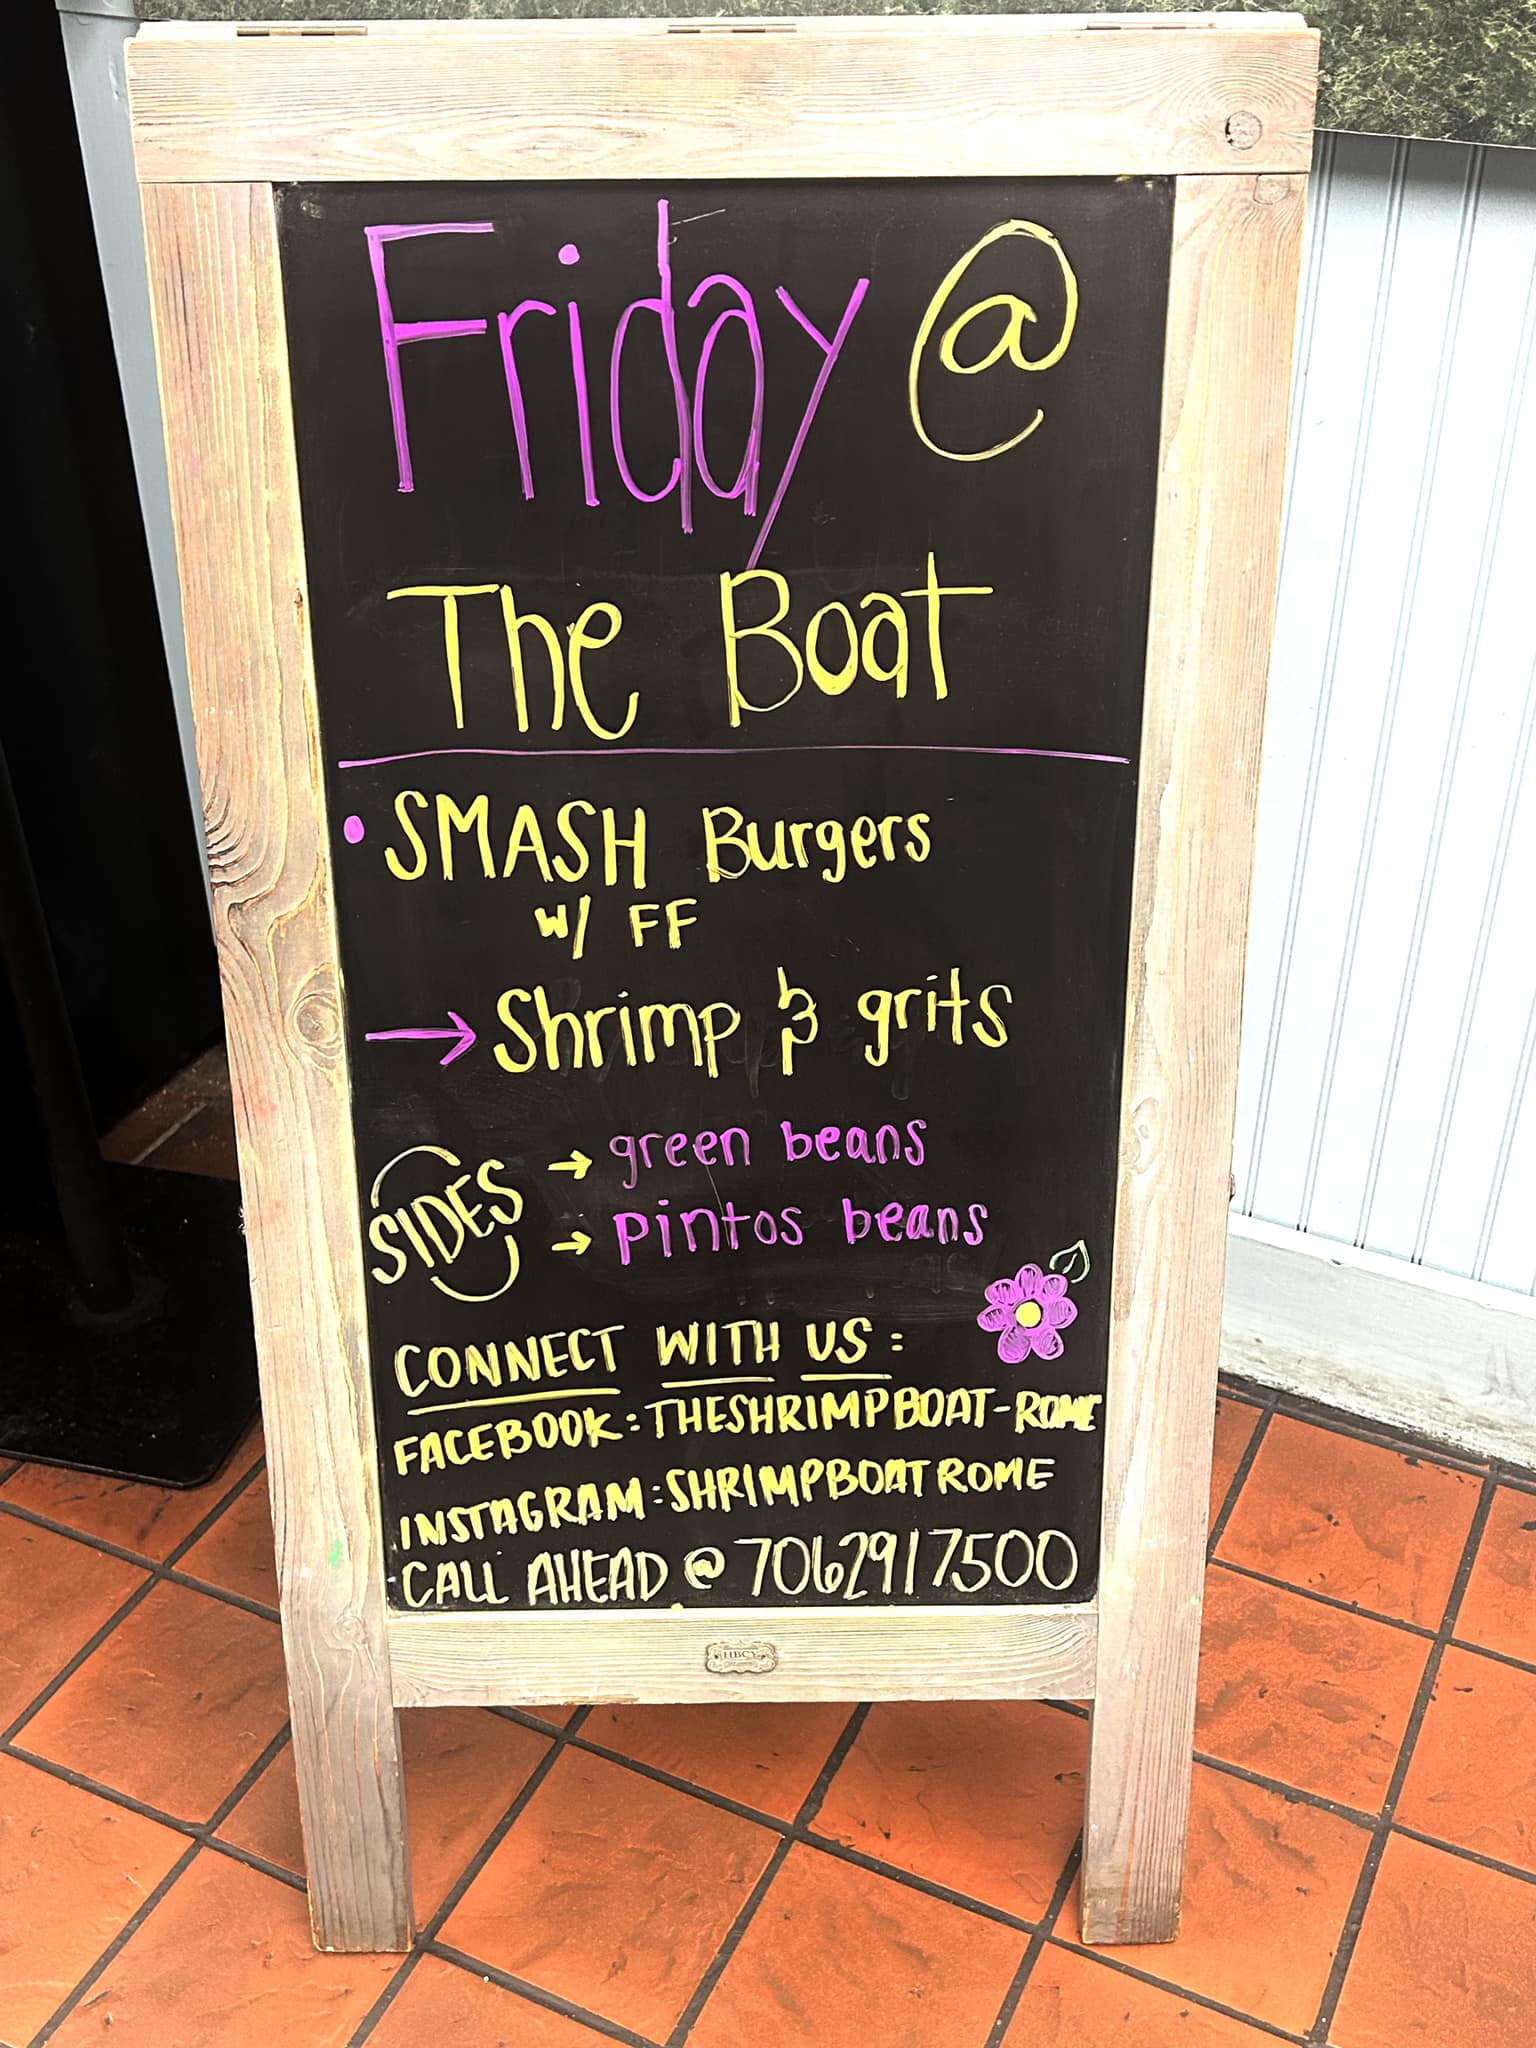 Friday @
The Boat
• SMASH Burgers
w/ FF
→ Shrimp & grits
SIDES → green beans
→ pintos beans
CONNECT WITH US:
FACEBOOK: THESHRIMPBOAT-ROME
INSTAGRAM: SHRIMPBOATROME
CALL AHEAD @ 7062917500
HBCY